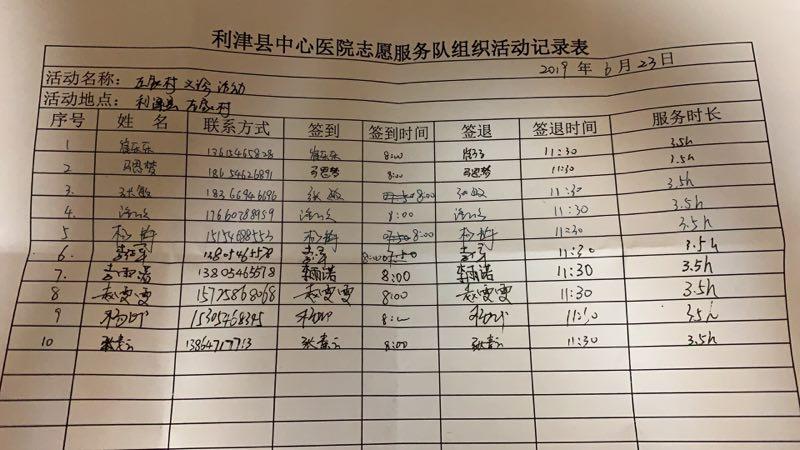 利津县中心医院志愿服务队组织活动记录表
2019 年 6 月 23 日
活动名称： 左家村 义诊 活动
活动地点： 利津县 左家村
序号 姓 名 联系方式 签到 签到时间 签退 签退时间 服务时长
1 崔东东 13615465828 崔东东 8:00 11:30 3.5h
2 马思梦 18654626891 马思梦 8:00 马思梦 11:30 3.5h
3. 张敏 18366946696 张敏 07:50 8:00 张敏 11:30 3.5h
4. 17660788959 8:00 11:30 3.5h
5 15154688553 07:50 8:00 11:30 3.5h
6. 13805465578 8:00 07:50 11:30 3.5h
7. 李雨诺 13805465578 李雨诺 8:00 李雨诺 11:30 3.5h
8 赵雯雯 15725868068 赵雯雯 8:00 赵雯雯 11:30 3.5h
9 15305468345 11:30 3.5h
10 8:00 11:30 3.5h